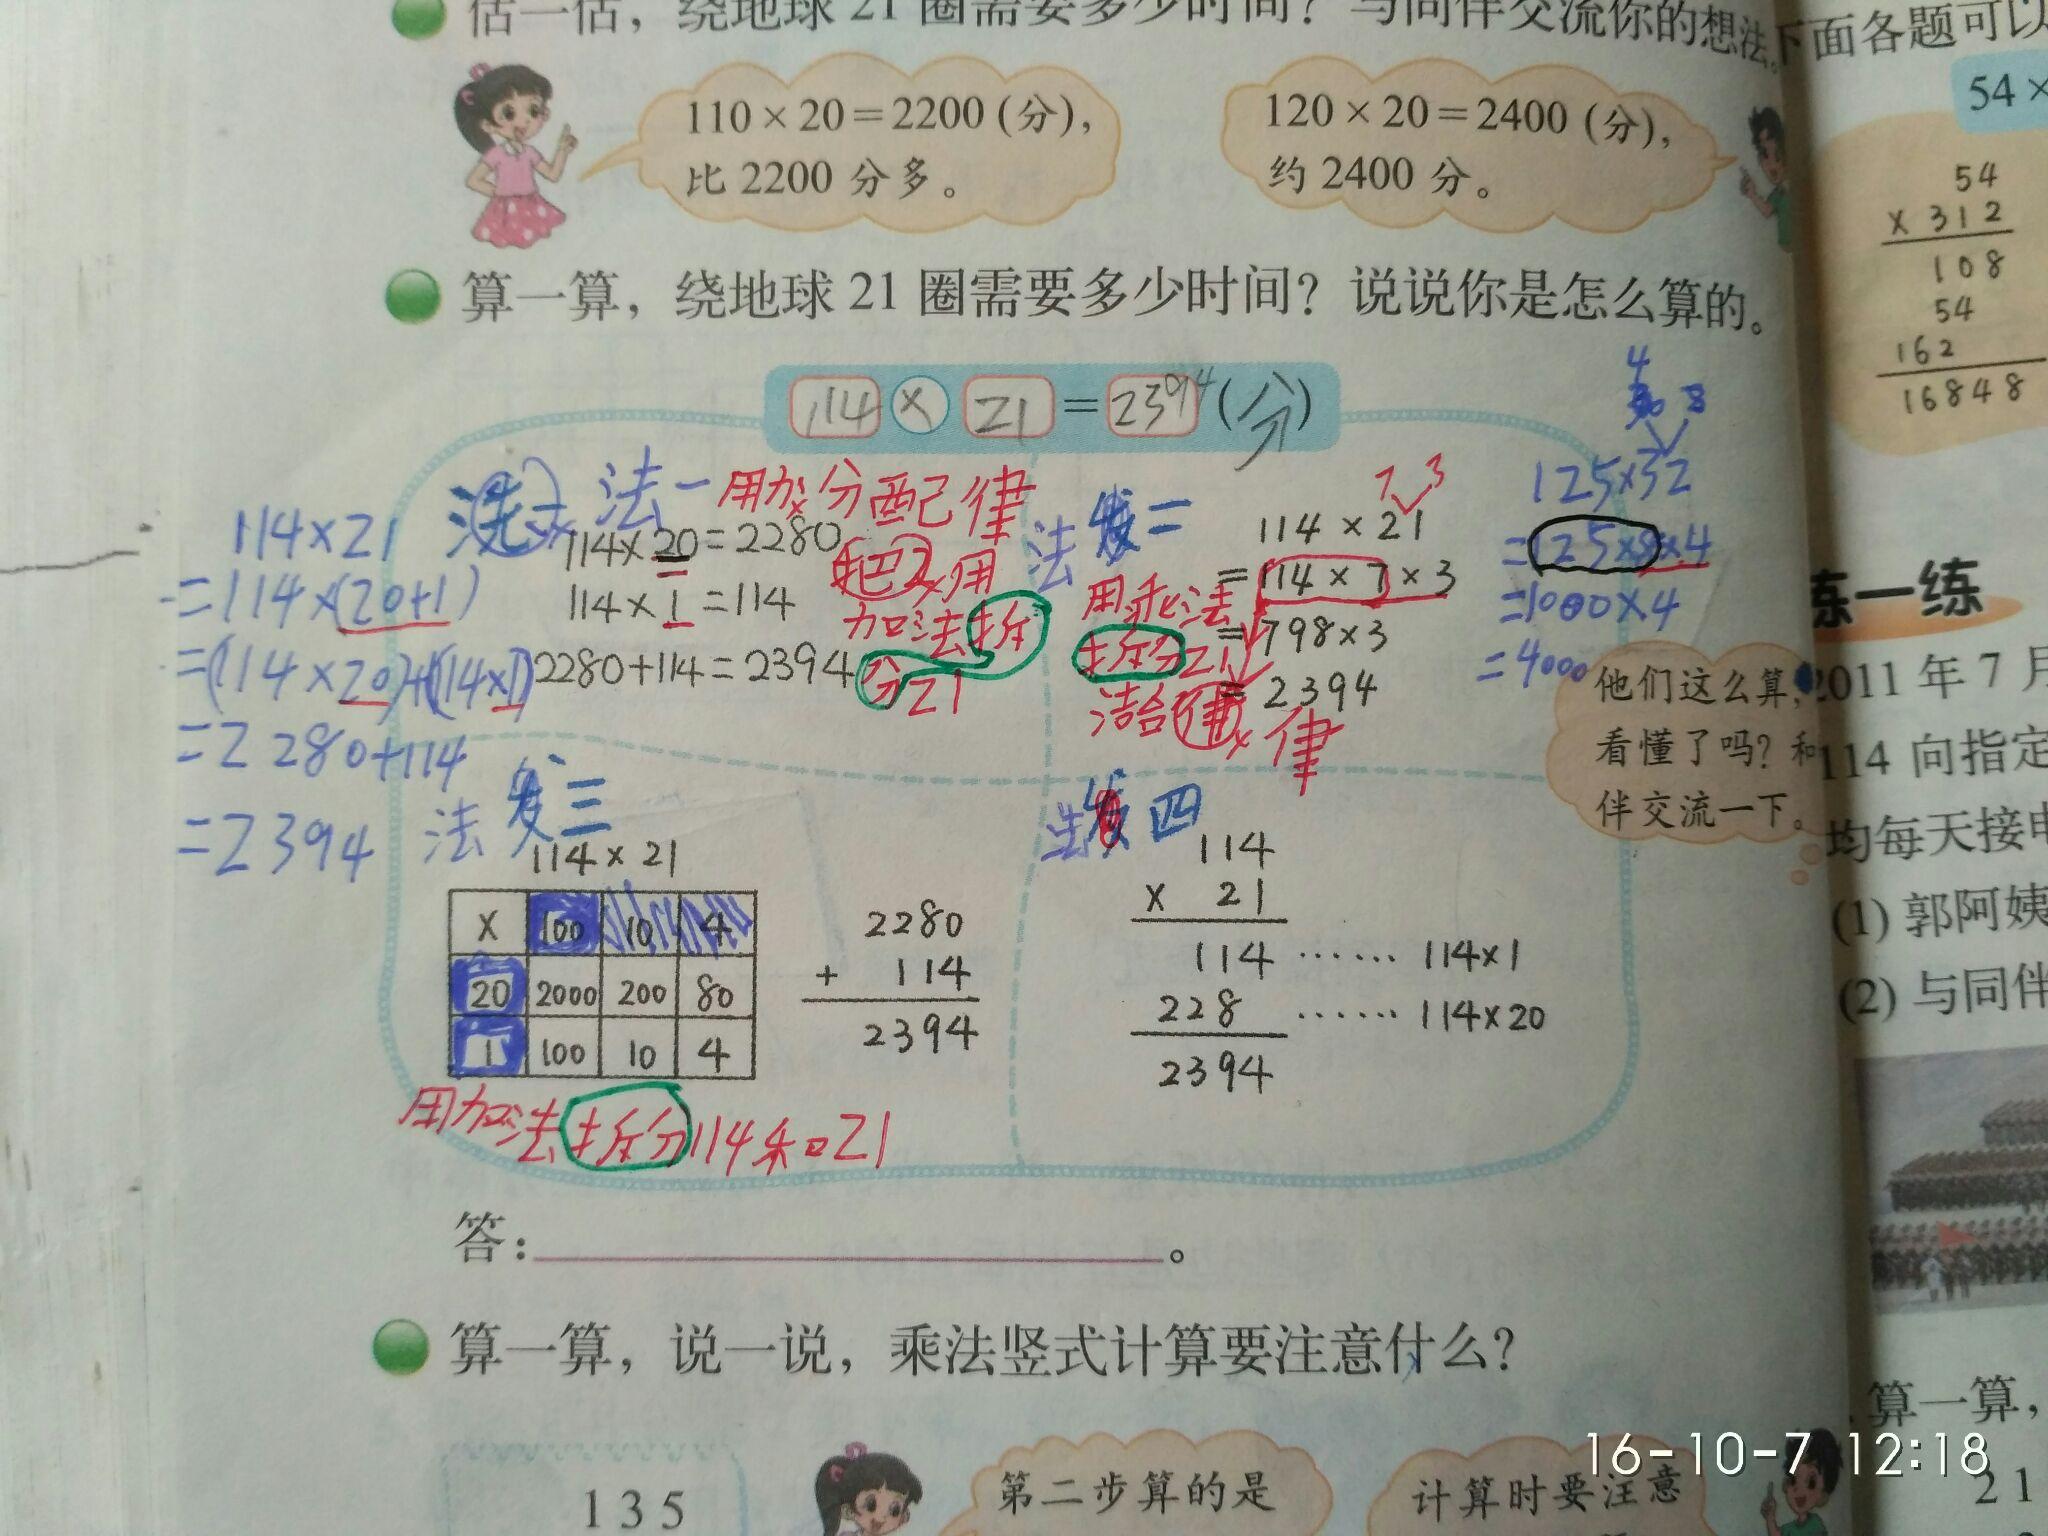 估一估，绕地球 21 圈需要多少时间？与同伴交流你的想法。
110×20=2200 (分)，
比 2200 分多。
120×20=2400 (分)，
约 2400 分。
算一算，绕地球 21 圈需要多少时间？说说你是怎么算的。
114 × 21 = 2394 (分)
114×21
=114×(20+1)
=(114×20)+(114×1)
=2280+114
=2394
法一 用 分配律
114×20=2280
114×1=114
2280+114=2394
用
加法拆
分21
法二
用乘法
拆分21
结合律
7 3
114×21
=114×7×3
=798×3
=2394
4 8
125×32
=125×8×4
=1000×4
=4000
他们这么算，
看懂了吗？和
伴交流一下。
法 三
114×21
× 100 10 4
20 2000 200 80
1 100 10 4
2280
+ 114
2394
用加法拆分114和21
四
114
× 21
114 …… 114×1
228 …… 114×20
2394
答：
。
算一算，说一说，乘法竖式计算要注意什么？
135
第二步算的是
计算时要注意
下面各题可以
54×
54
×312
108
54
162
16848
练一练
2011 年 7 月
114 向指定
均每天接电
(1) 郭阿姨
(2) 与同伴
算一算，
21
16-10-7 12:18